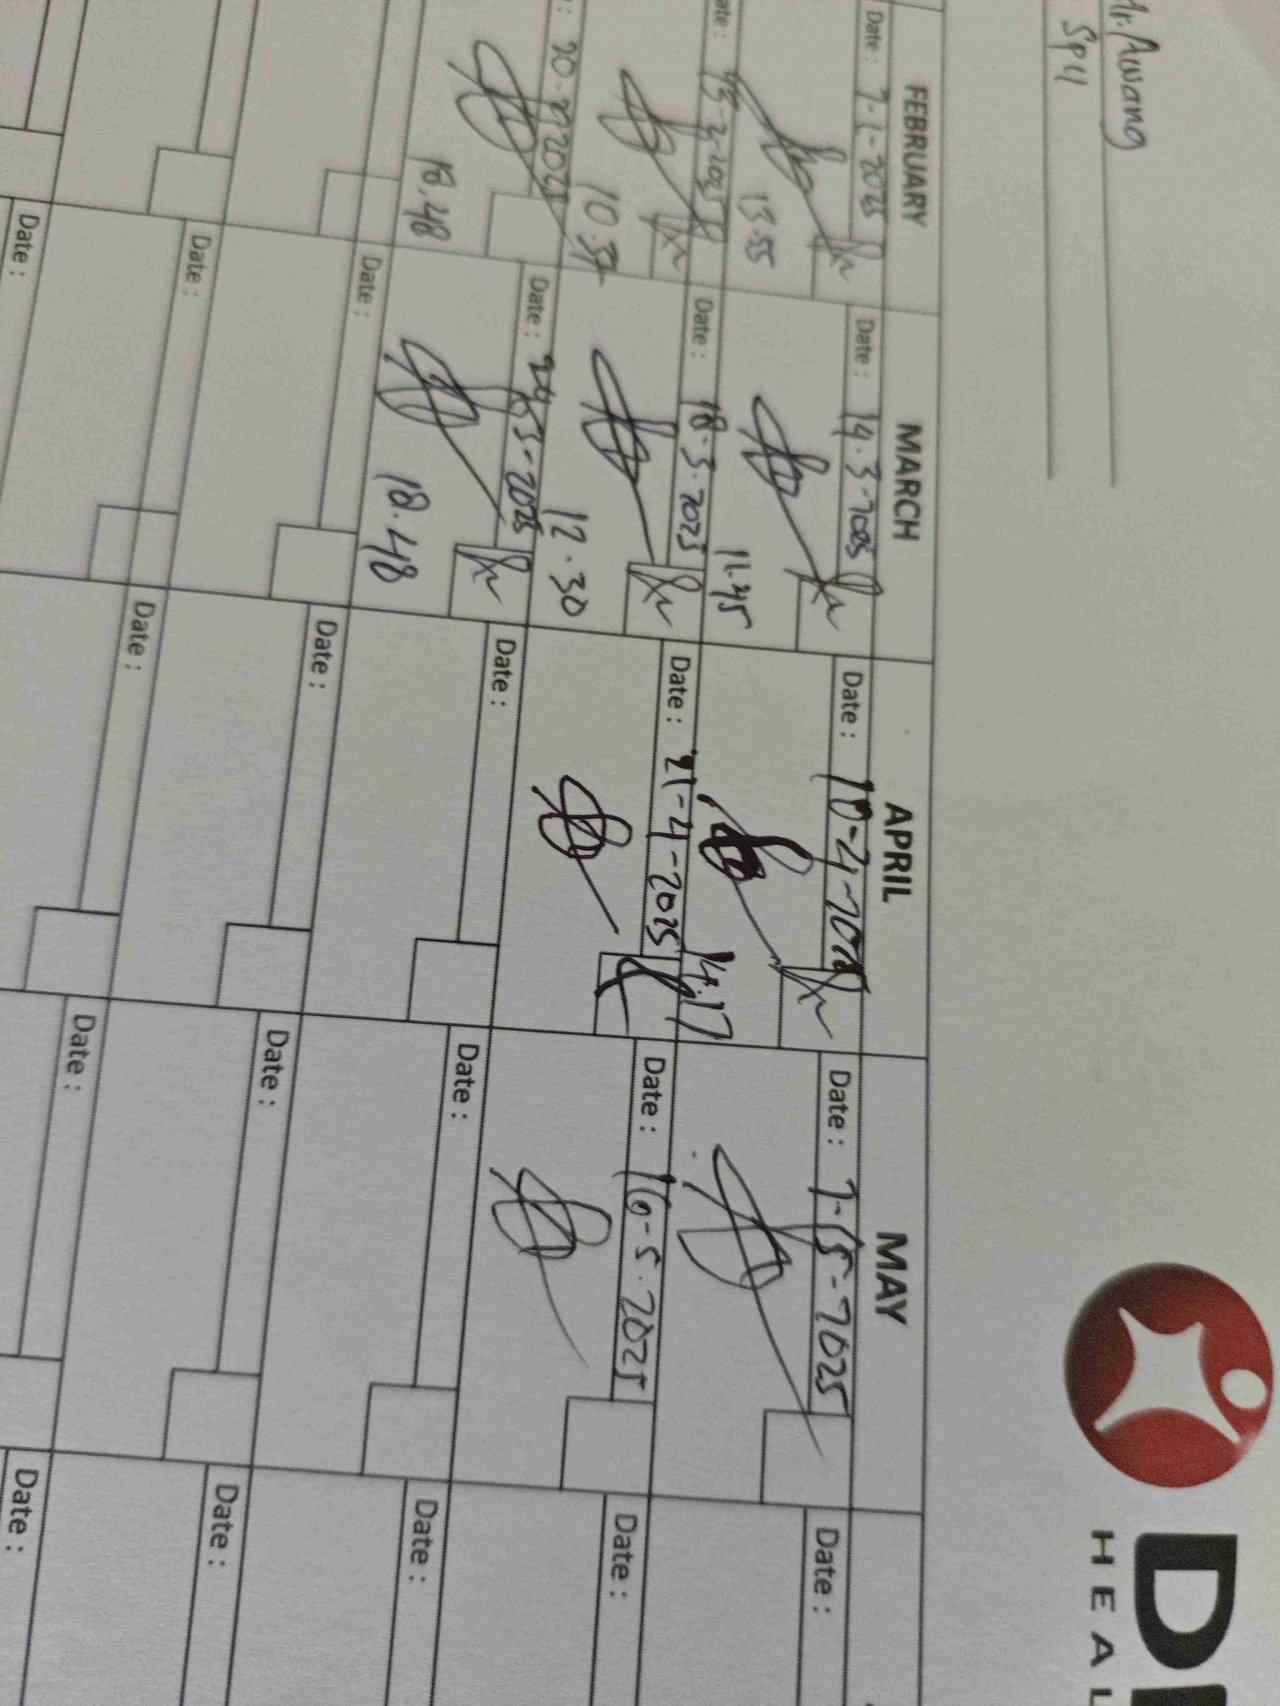 Mr. Awang
Sp4
FEBRUARY MARCH APRIL MAY
Date : 7-2-2025 Date : 14.3-2025 Date : 10-4-2025 Date : 7-5-2025 Date :
13.55 11.45 14.17
Date : 13-2-2025 Date : 18-3-2025 Date : 21-4-2025 Date : 16-5-2025 Date :
10.37 12.30
: 20-2-2025 Date : 24-3-2025 Date : Date : Date :
18.48 18.48
Date : Date : Date : Date :
Date : Date : Date : Date :
Date :
D
HEAL